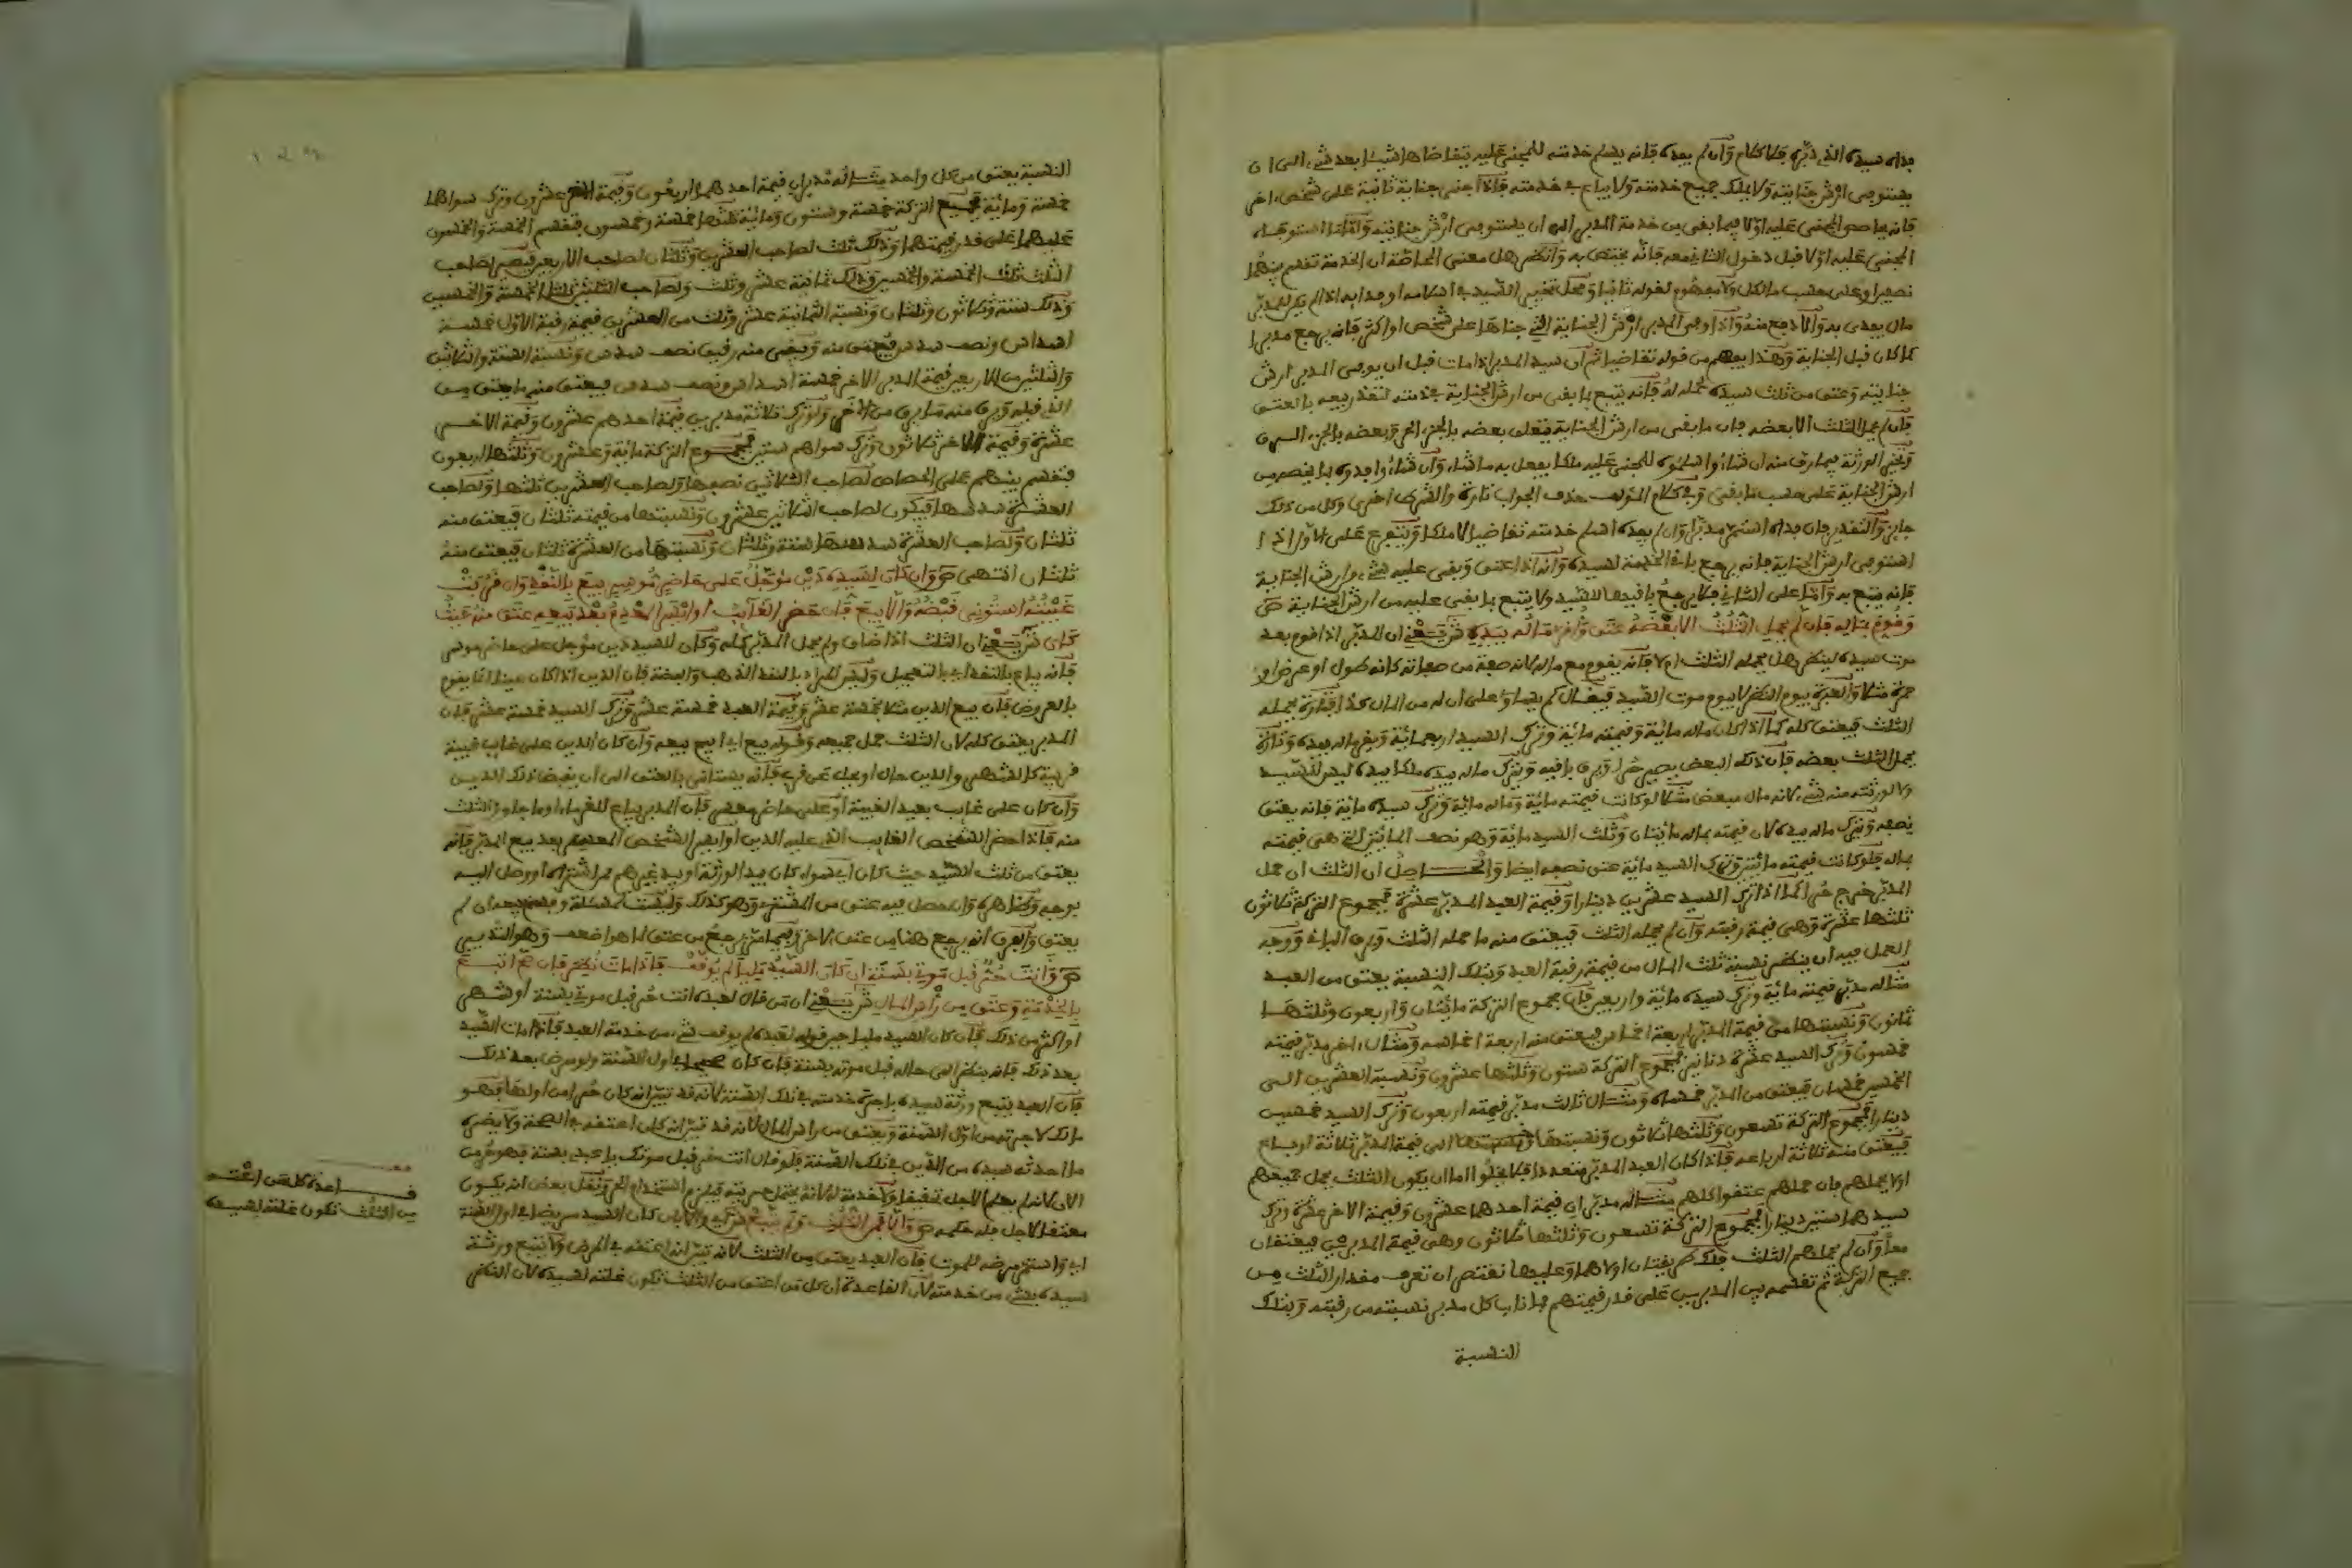 فداه سيده الذي دبره فلا كلام وان لم يفده فانه يسلم خدمته للمجني عليه يتقاضاها شيئا بعد شيء الى ان
يستوفي ارش جنايته ولا يملك جميع خدمته ولا يباع في خدمته فاذا جنى جناية ثانية على شخص اخر
فانه يحاصص المجني عليه اولا فيما بقي من خدمة المدبر الى ان يستوفي ارش جنايته واما ما استوفاه
المجني عليه اولا قبل دخول الثاني معه فانه يختص به وانظر هل معنى المحاصة ان الخدمة تقسم بينهما
مال يفدى به والا دفع منه واذا وفى المدبر ارش الجناية التي جناها على شخص او اكثر فانه يرجع مدبرا
كما كان قبل الجناية وهذا يفهم من قوله تقاضيا ثم ان سيد المدبر اذا مات قبل ان يوفي المدبر ارش
جنايته وعتق من ثلث سيده لحمله له فانه يتبع بما بقي من ارش الجناية في ذمته لتعذر بيعه بالعتق
فان لم يحمل الثلث الا بعضه فان ما بقي من ارش الجناية يتعلق بعضه بالجزء الحر وبعضه بالجزء الرق
ويخير الورثة فيما رق منه ان شاءوا اسلموه للمجني عليه ملكا يفعل به ما شاء وان شاءوا فدوه بما يخصه من
ارش الجناية على حسب ما بقي وفي كلام المؤلف حذف الجواب تارة والشرط اخرى وكل من ذلك
جايز والتقدير فان فداه استمر مدبرا وان لم يفده اسلم خدمته تقاضيا لا ملكا ويتفرع على الاول اذا
استوفى ارش الجناية فانه يرجع باقي الخدمة لسيده وانه اذا عتق وبقي عليه شيء من ارش الجناية
فانه يتبع به واما على الثاني فلا يرجع باقيها للسيد ولا يتبع بما بقي عليه من ارش الجناية ص
وقوم بماله فان لم يحمل الثلث الا بعضه عتق وأقر ماله بيده ش يعني ان المدبر اذا قوم بعد
موت سيده لينظر هل يحمله الثلث ام لا فانه يقوم مع ماله لانه صفة من صفاته كانه طول او عرض او
حمرة مثلا والعبرة بيوم النظر لا بيوم موت السيد فيقال كم يساوي على ان له من المال كذا فتارة يحمله
الثلث فيعتق كله كما اذا كان ماله مائة وقيمته مائة وترك السيد اربعمائة ويقر ماله بيده وتارة
يحمل الثلث بعضه فان ذلك البعض يصير حرا ويرق باقيه ويترك ماله بيده ملكا بيده ليس للسيد
ولا لورثته منه شيء لانه مال مبعض مثلا لو كانت قيمته مائة وماله مائة وترك سيده مائة فانه يعتق
نصفه ويترك ماله بيده لان قيمته بماله مائتان وثلث السيد مائة وهو نصف المائتين التي هي قيمته
بماله فلو كانت قيمته مائتين وترك السيد مائة عتق نصفه ايضا والحاصل ان الثلث ان حمل
المدبر خرج حرا كما اذا ترك السيد عشرين دينارا وقيمة العبد المدبر عشرة فمجموع التركة ثلاثون
ثلثها عشرة وهي قيمة رقبته وان لم يحمله الثلث فيعتق منه ما حمله الثلث ويرق الباقي ووجه
العمل فيه ان ينظر نسبة ثلث المال من قيمة رقبة العبد وبتلك النسبة يعتق من العبد
مثاله مدبر قيمته مائة وترك سيده مائة واربعين فان مجموع التركة مائتان واربعون وثلثها
ثمانون ونسبتها من قيمة المدبر اربعة اخماس فيعتق منه اربعة اخماسه ومثال اخر مدبر قيمته
خمسون وترك السيد عشرة دنانير فمجموع التركة ستون وثلثها عشرون ونسبة العشرين الى
الخمسين خمسان فيعتق من المدبر خمساه ومثال ثالث مدبر قيمته اربعون وترك السيد خمسين
دينارا فمجموع التركة تسعون وثلثها ثلاثون ونسبتها الى قيمة المدبر ثلاثة ارباع
فيعتق منه ثلاثة ارباعه فاذا كان العبد المدبر متعددا فلا يخلو اما ان يكون الثلث يحمل جميعهم
او لا يحملهم فان حملهم عتقوا كلهم مثاله مدبران قيمة احدهما عشرون وقيمة الاخر عشرة وترك
سيدهما ستين دينارا فمجموع التركة تسعون وثلثها ثلاثون وهي قيمة المدبرين فيعتقان
معا وان لم يحملهم الثلث فلك طريقتان اولاهما وعليها نقتصر ان تعرف مقدار الثلث من
جميع التركة ثم تقسمه بين المدبرين على قدر قيمتهم فما ناب كل مدبر نسبته من رقبته وبتلك
النسبة
النسبة يعتق من كل واحد مثاله مدبران قيمة احدهما اربعون وقيمة الاخر عشرون وترك سواهما
خمسة ومائة فجميع التركة خمسة وستون ومائة ثلثها خمسة وخمسون فتقسم الخمسة والخمسون
عليهما على قدر قيمتهما وذلك ثلث لصاحب العشرين وثلثان لصاحب الاربعين فيصير لصاحب
الثلث ثلث الخمسة والخمسين وذلك ثمانية عشر وثلث ولصاحب الثلثين ثلثا الخمسة والخمسين
وذلك ستة وثلاثون وثلثان ونسبة الثمانية عشر وثلث من العشرين قيمة رقبة الاول خمسة
اسداس ونصف سدس فيعتق منه ويبقى منه رقيق نصف سدس ونسبة الستة والثلاثين
والثلثين من الاربعين قيمة المدبر الاخر خمسة اسداس ونصف سدس فيعتق منه ما يعتق من
الذي قبله ويرق منه ما يرق من الاخر ولو ترك ثلاثة مدبرين قيمة احدهم عشرون وقيمة الاخر
عشرة وقيمة الاخر ثلاثون وترك سواهم ستين فمجموع التركة مائة وعشرون وثلثها اربعون
فتقسم بينهم على الحصاص لصاحب الثلاثين نصفها ولصاحب العشرين ثلثها ولصاحب
العشرة سدسها فيكون لصاحب الثلاثين عشرون ونسبتها من قيمته ثلثان فيعتق منه
ثلثان ولصاحب العشرة سدسها ستة وثلثان ونسبتها من العشرة ثلثان فيعتق منه
ثلثان انتهى ص وان كان لسيده دين مؤجل على حاضر موسر بيع بالنقد وان قربت
غيبته استؤني قبضه والا بيع فان حضر الغائب او ايسر المعدم بعد بيعه عتق منه حيث
كان ش يعني ان الثلث اذا ضاق ولم يحمل المدبر كله وكان للسيد دين مؤجل على حاضر موسر
فانه يباع بالنقد اي بالتعجيل وليس المراد بالنقد الذهب والفضة فان الدين اذا كان عينا انما يقوم
بالعروض فان بيع الدين مثلا بخمسة عشر وقيمة العبد خمسة عشر وترك السيد خمسة عشر فان
المدبر يعتق كله لان الثلث حمل جميعه وقوله بيع اي ابيح بيعه وان كان الدين على غايب غيبة
قريبة كالشهر والدين حال او يحل عن قرب فانه يستانى بالعتق الى ان يقبض ذلك الدين
وان كان على غايب بعيد الغيبة او على حاضر معسر فان المدبر يباع للغرماء او ما جاوز الثلث
منه فاذا حضر الشخص الغايب الذي عليه الدين او ايسر الشخص المعدم بعد بيع المدبر فانه
يعتق من ثلث السيد حيث كان اي سواء كان بيد الورثة او بيد غيرهم ممن اشتراه او وصل اليه
يعتق والفرق انه يرجع هنا من عتق الاخر وفيما مر يرجع من عتق لما هو اضعف وهو التدبير
ص وانت حر قبل موتي بسنة ان كان السيد مليا لم يوقف فاذا مات نظر فان صح اتبع
بالخدمة وعتق من راس المال ش يعني ان من قال لعبده انت حر قبل موتي بسنة او شهر
او اكثر من ذلك فان كان السيد مليا حين قوله لعبده لم يوقف شيء من خدمة العبد فاذا مات السيد
بعد ذلك فانه ينظر الى حاله قبل موته بسنة فان كان صحيحا في اول السنة ولو مرض بعد ذلك
فان العبد يتبع ورثة سيده باجرة خدمته في تلك السنة لانه قد تبين انه كان حرا من اولها فهو
مالك لاجرته من اول السنة ويعتق من راس المال لانه قد تبين انه كان اعتقه في الصحة ولا يضره
ما احدثه سيده من الدين في تلك السنة فلو قال انت حر قبل موتك يا عبدي بسنة فهو حر من
الان لانه لم يعلم الاجل تحقيقا ولا خدمة له لانه يحتمل حريته قبل فيلزم استخدام الحر ونقل بعض انه يكون
معتقا لاجل فله حكمه ص والا فمن الثلث ولم يتبع ش اي والا بان كان السيد مريضا في اول السنة
اي واستمر مرضه للموت فان العبد يعتق من الثلث لانه تبين انه اعتقه في المرض ولا يتبع ورثة
سيده بشيء من خدمته لان القاعدة ان كل من اعتق من الثلث تكون غلته لسيده لان النظر
قاعدة كل من اعتق
من الثلث تكون غلته لسيده